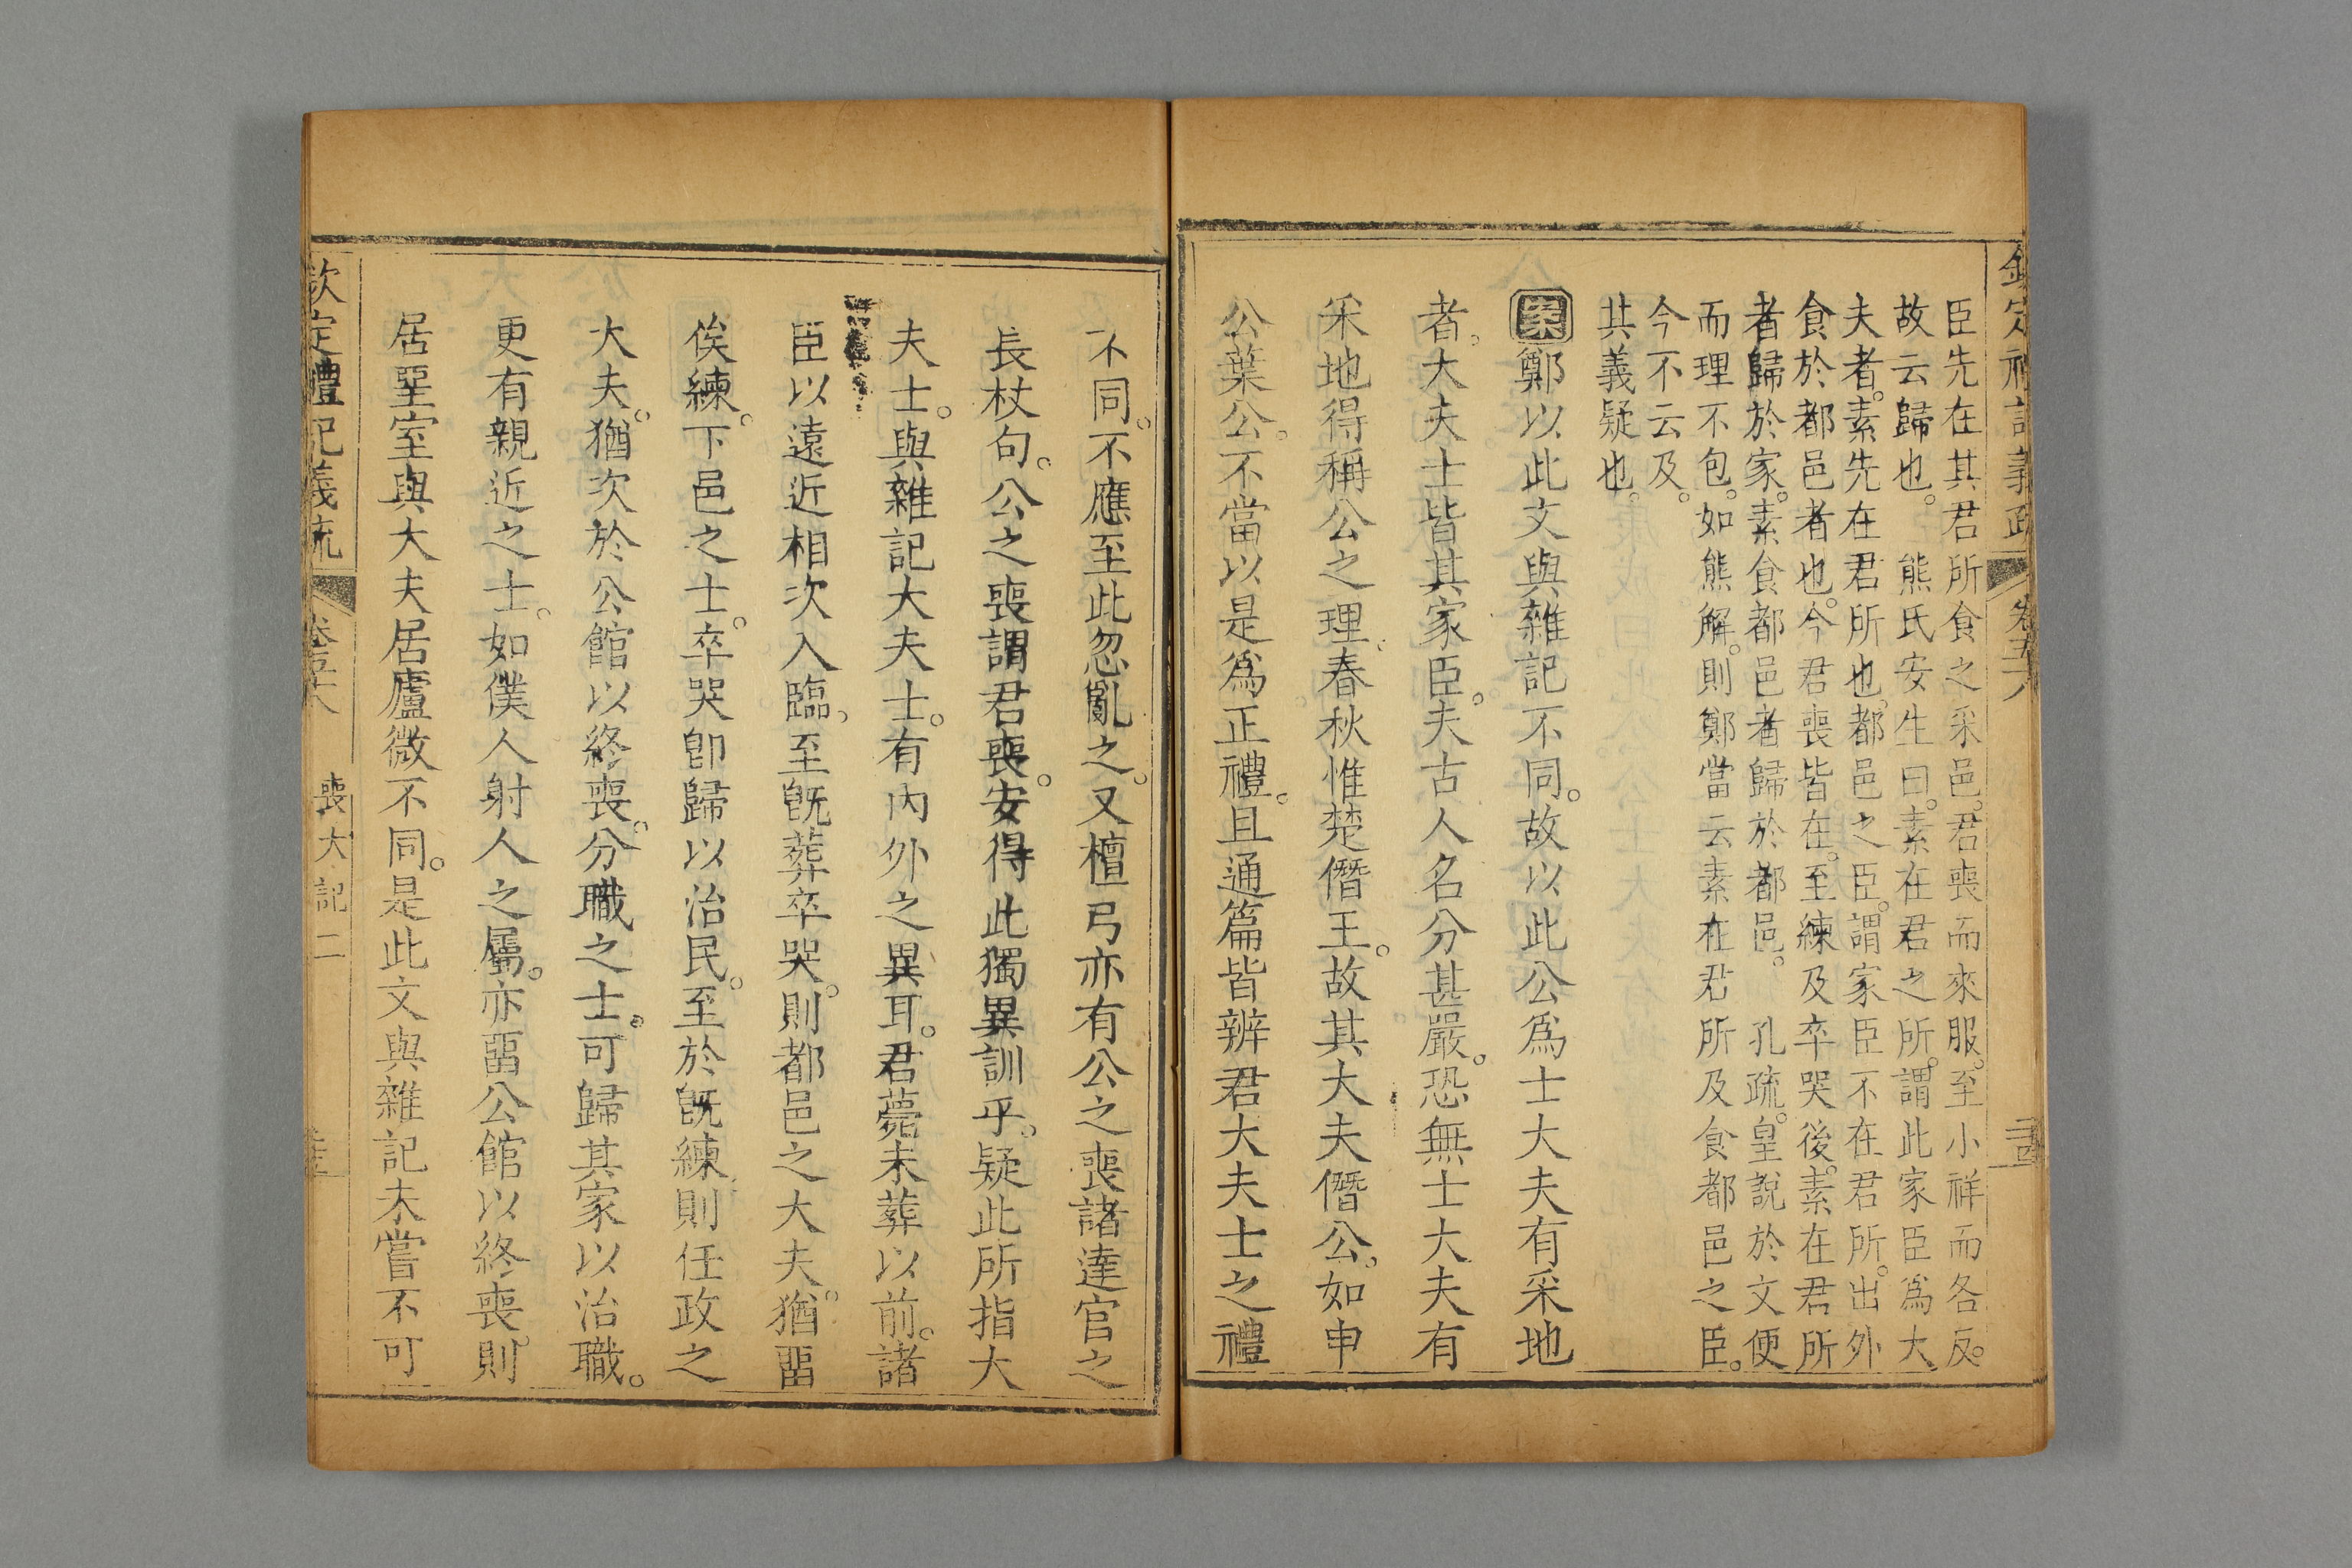 欽定禮記義疏 卷五十八
臣先在其君所食之采邑。君喪而來服。至小祥而各反。
故云歸也。 熊氏安生曰。素在君之所。謂此家臣爲大
夫者。素先在君所也。都邑之臣。謂家臣不在君所。出外
食於都邑者也。今君喪皆在。至練及卒哭後。素在君所
者歸於家。素食都邑者歸於都邑。 孔疏。皇說於文便
而理不包。如熊解。則鄭當云素在君所及食都邑之臣。
今不云及。
其義疑也。
案鄭以此文與雜記不同。故以此公爲士大夫有采地
者。大夫士皆其家臣。夫古人名分甚嚴。恐無士大夫有
采地得稱公之理。春秋惟楚僭王。故其大夫僭公。如申
公葉公。不當以是爲正禮。且通篇皆辨君大夫士之禮
不同。不應至此忽亂之。又檀弓亦有公之喪諸達官之
長杖句。公之喪謂君喪。安得此獨異訓乎。疑此所指大
夫士。與雜記大夫士。有內外之異耳。君薨未葬以前。諸
臣以遠近相次入臨。至旣葬卒哭。則都邑之大夫。猶畱
俟練。下邑之士。卒哭卽歸以治民。至於旣練則任政之
大夫。猶次於公館以終喪。分職之士。可歸其家以治職。
更有親近之士。如僕人射人之屬。亦畱公館以終喪。則
居堊室與大夫居廬微不同。是此文與雜記未嘗不可
欽定禮記義疏 卷五十八 喪大記二